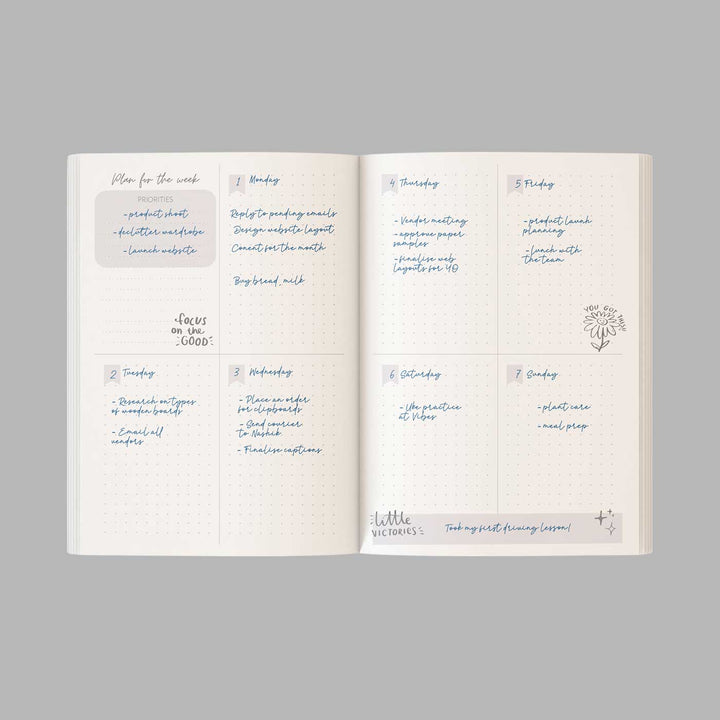 Plan for the week
PRIORITIES
-product shoot
-declutter wardrobe
-launch website
focus
on the
GOOD
1 Monday
Reply to pending emails
Design website layout
Conent for the month
Buy bread, milk
2 Tuesday
- Research on types
of wooden boards
- Email all
vendors
3 Wednesday
- Place an order
for clipboards
- Send courier
to Nashik
- Finalise captions
4 Thursday
- Vendor meeting
- approve paper
samples
- finalise web
layouts for YO
5 Friday
- product launh
planning
- lunch with
the team
YOU GOT THIS!
6 Saturday
- Uke practice
at Vibes
7 Sunday
- plant care
- meal prep
little
VICTORIES
Took my first driving lesson!